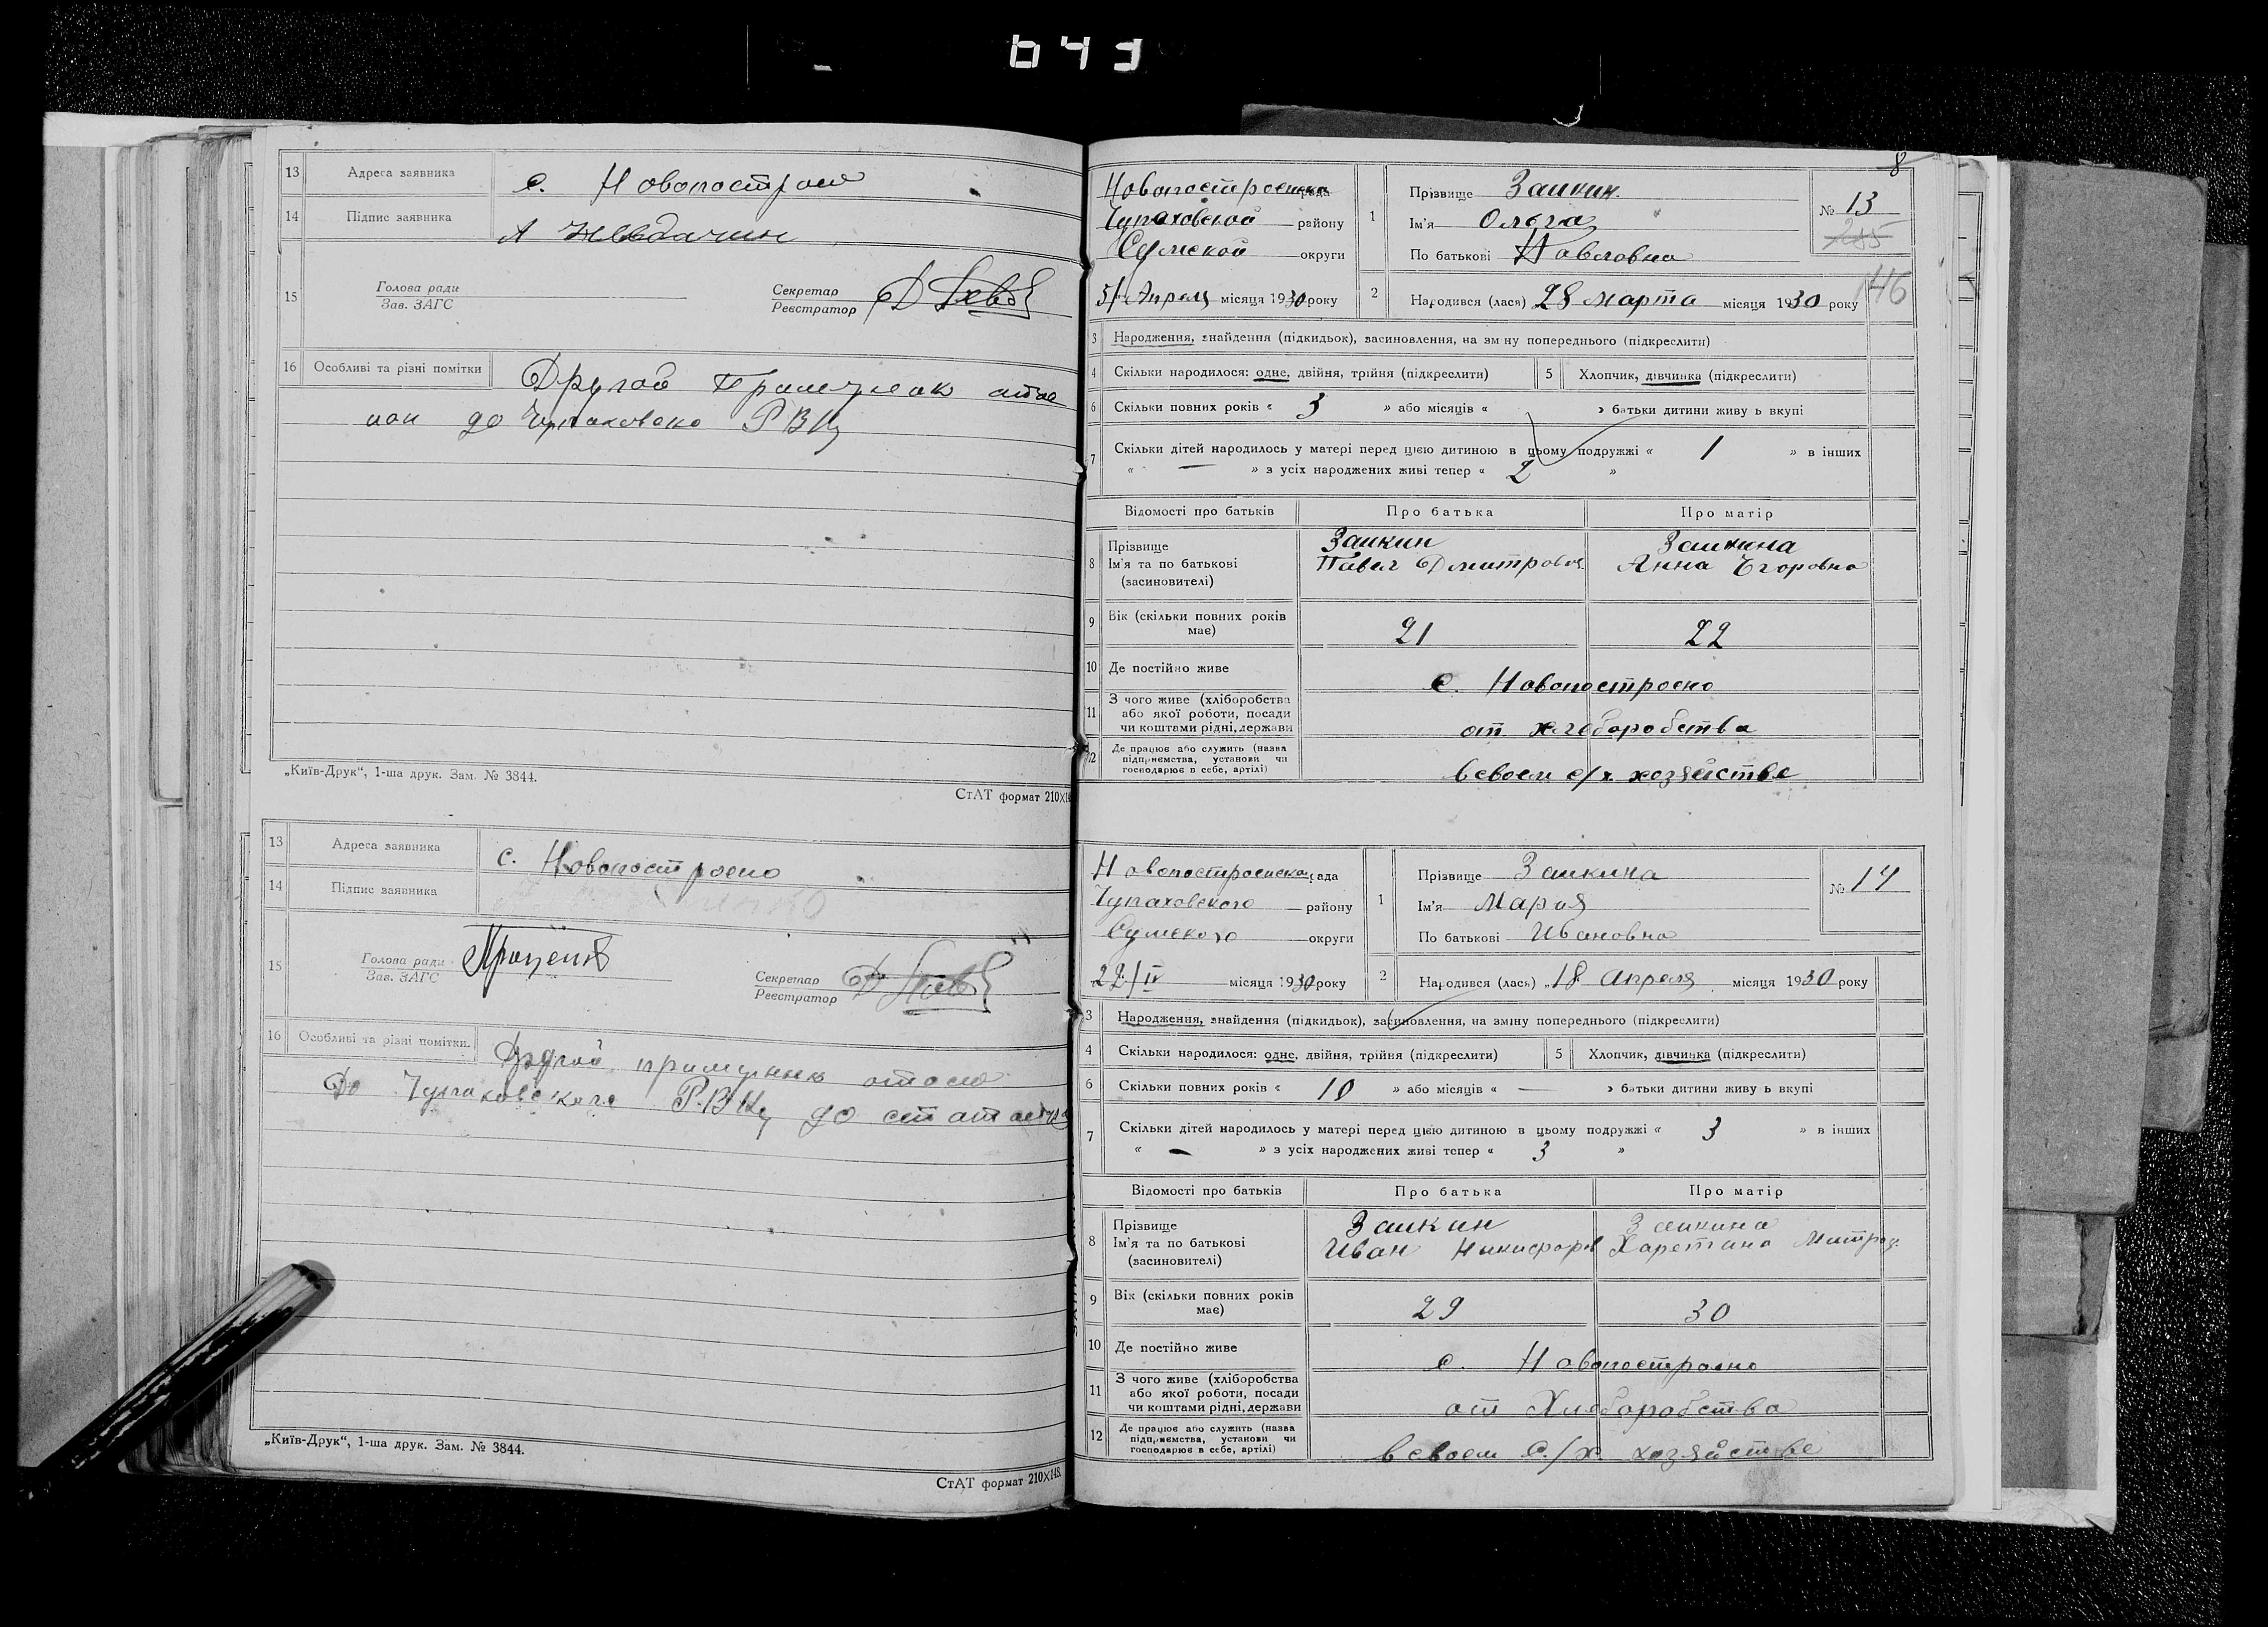 643
13 Адреса заявника с. Новопострою
14 Підпис заявника
15 Голова ради
Зав. ЗАГС
Секретар
Реєстратор
16 Особливі та різні помітки Другой
до Чупаховско РВК
„Київ-Друк“, 1-ша друк. Зам. № 3844.
СтАТ формат 210×14
13 Адреса заявника с. Новопостроено
14 Підпис заявника
15 Голова ради
Зав. ЗАГС
Секретар
Реєстратор
16 Особливі та різні помітки.
До Чупаховского РВК до
„Київ-Друк“, 1-ша друк. Зам. № 3844.
СтАТ формат 210×148.
8
Новопостроенска рада
Чупаховской району
Сумской округи
5/ Апреля місяця 1930 року
1 Прізвище Заикин
Ім'я Ольга
По батькові Павловна
№ 13
285
146
2 Народився (лася) 28 марта місяця 1930 року
3 Народження, знайдення (підкидьок), засиновлення, на зміну попереднього (підкреслити)
4 Скільки народилося: одне, двійня, трійня (підкреслити) 5 Хлопчик, дівчинка (підкреслити)
6 Скільки повних років « 3 » або місяців « » батьки дитини живуть вкупі
7 Скільки дітей народилось у матері перед цією дитиною в цьому подружжі « 1 » в інших
« — » з усіх народжених живі тепер « 2 »
Відомості про батьків Про батька Про матір
8 Прізвище Заикин Заикина
Ім'я та по батькові Павел Дмитрович Анна Егоровна
(засиновителі)
9 Вік (скільки повних років має) 21 22
10 Де постійно живе с. Новопостроено
11 З чого живе (хліборобства
або якої роботи, посади
чи коштами рідні, держави от хлеборобства
12 Де працює або служить (назва
підприємства, установи чи
господарює в себе, артілі) в своем с/х хозяйстве
Новопостроенска рада
Чупаховского району
Сумского округи
22/IV місяця 1930 року
1 Прізвище Заикина
Ім'я Мария
По батькові Ивановна
№ 14
2 Народився (лася) 18 апреля місяця 1930 року
3 Народження, знайдення (підкидьок), засиновлення, на зміну попереднього (підкреслити)
4 Скільки народилося: одне, двійня, трійня (підкреслити) 5 Хлопчик, дівчинка (підкреслити)
6 Скільки повних років « 10 » або місяців « — » батьки дитини живуть вкупі
7 Скільки дітей народилось у матері перед цією дитиною в цьому подружжі « 3 » в інших
« — » з усіх народжених живі тепер « 3 »
Відомості про батьків Про батька Про матір
8 Прізвище Заикин Заикина
Ім'я та по батькові Иван Никифоров Харетина Митроф.
(засиновителі)
9 Вік (скільки повних років має) 29 30
10 Де постійно живе с. Новопостроено
11 З чого живе (хліборобства
або якої роботи, посади
чи коштами рідні, держави от Хлеборобства
12 Де працює або служить (назва
підприємства, установи чи
господарює в себе, артілі) в своем с./х. хозяйстве